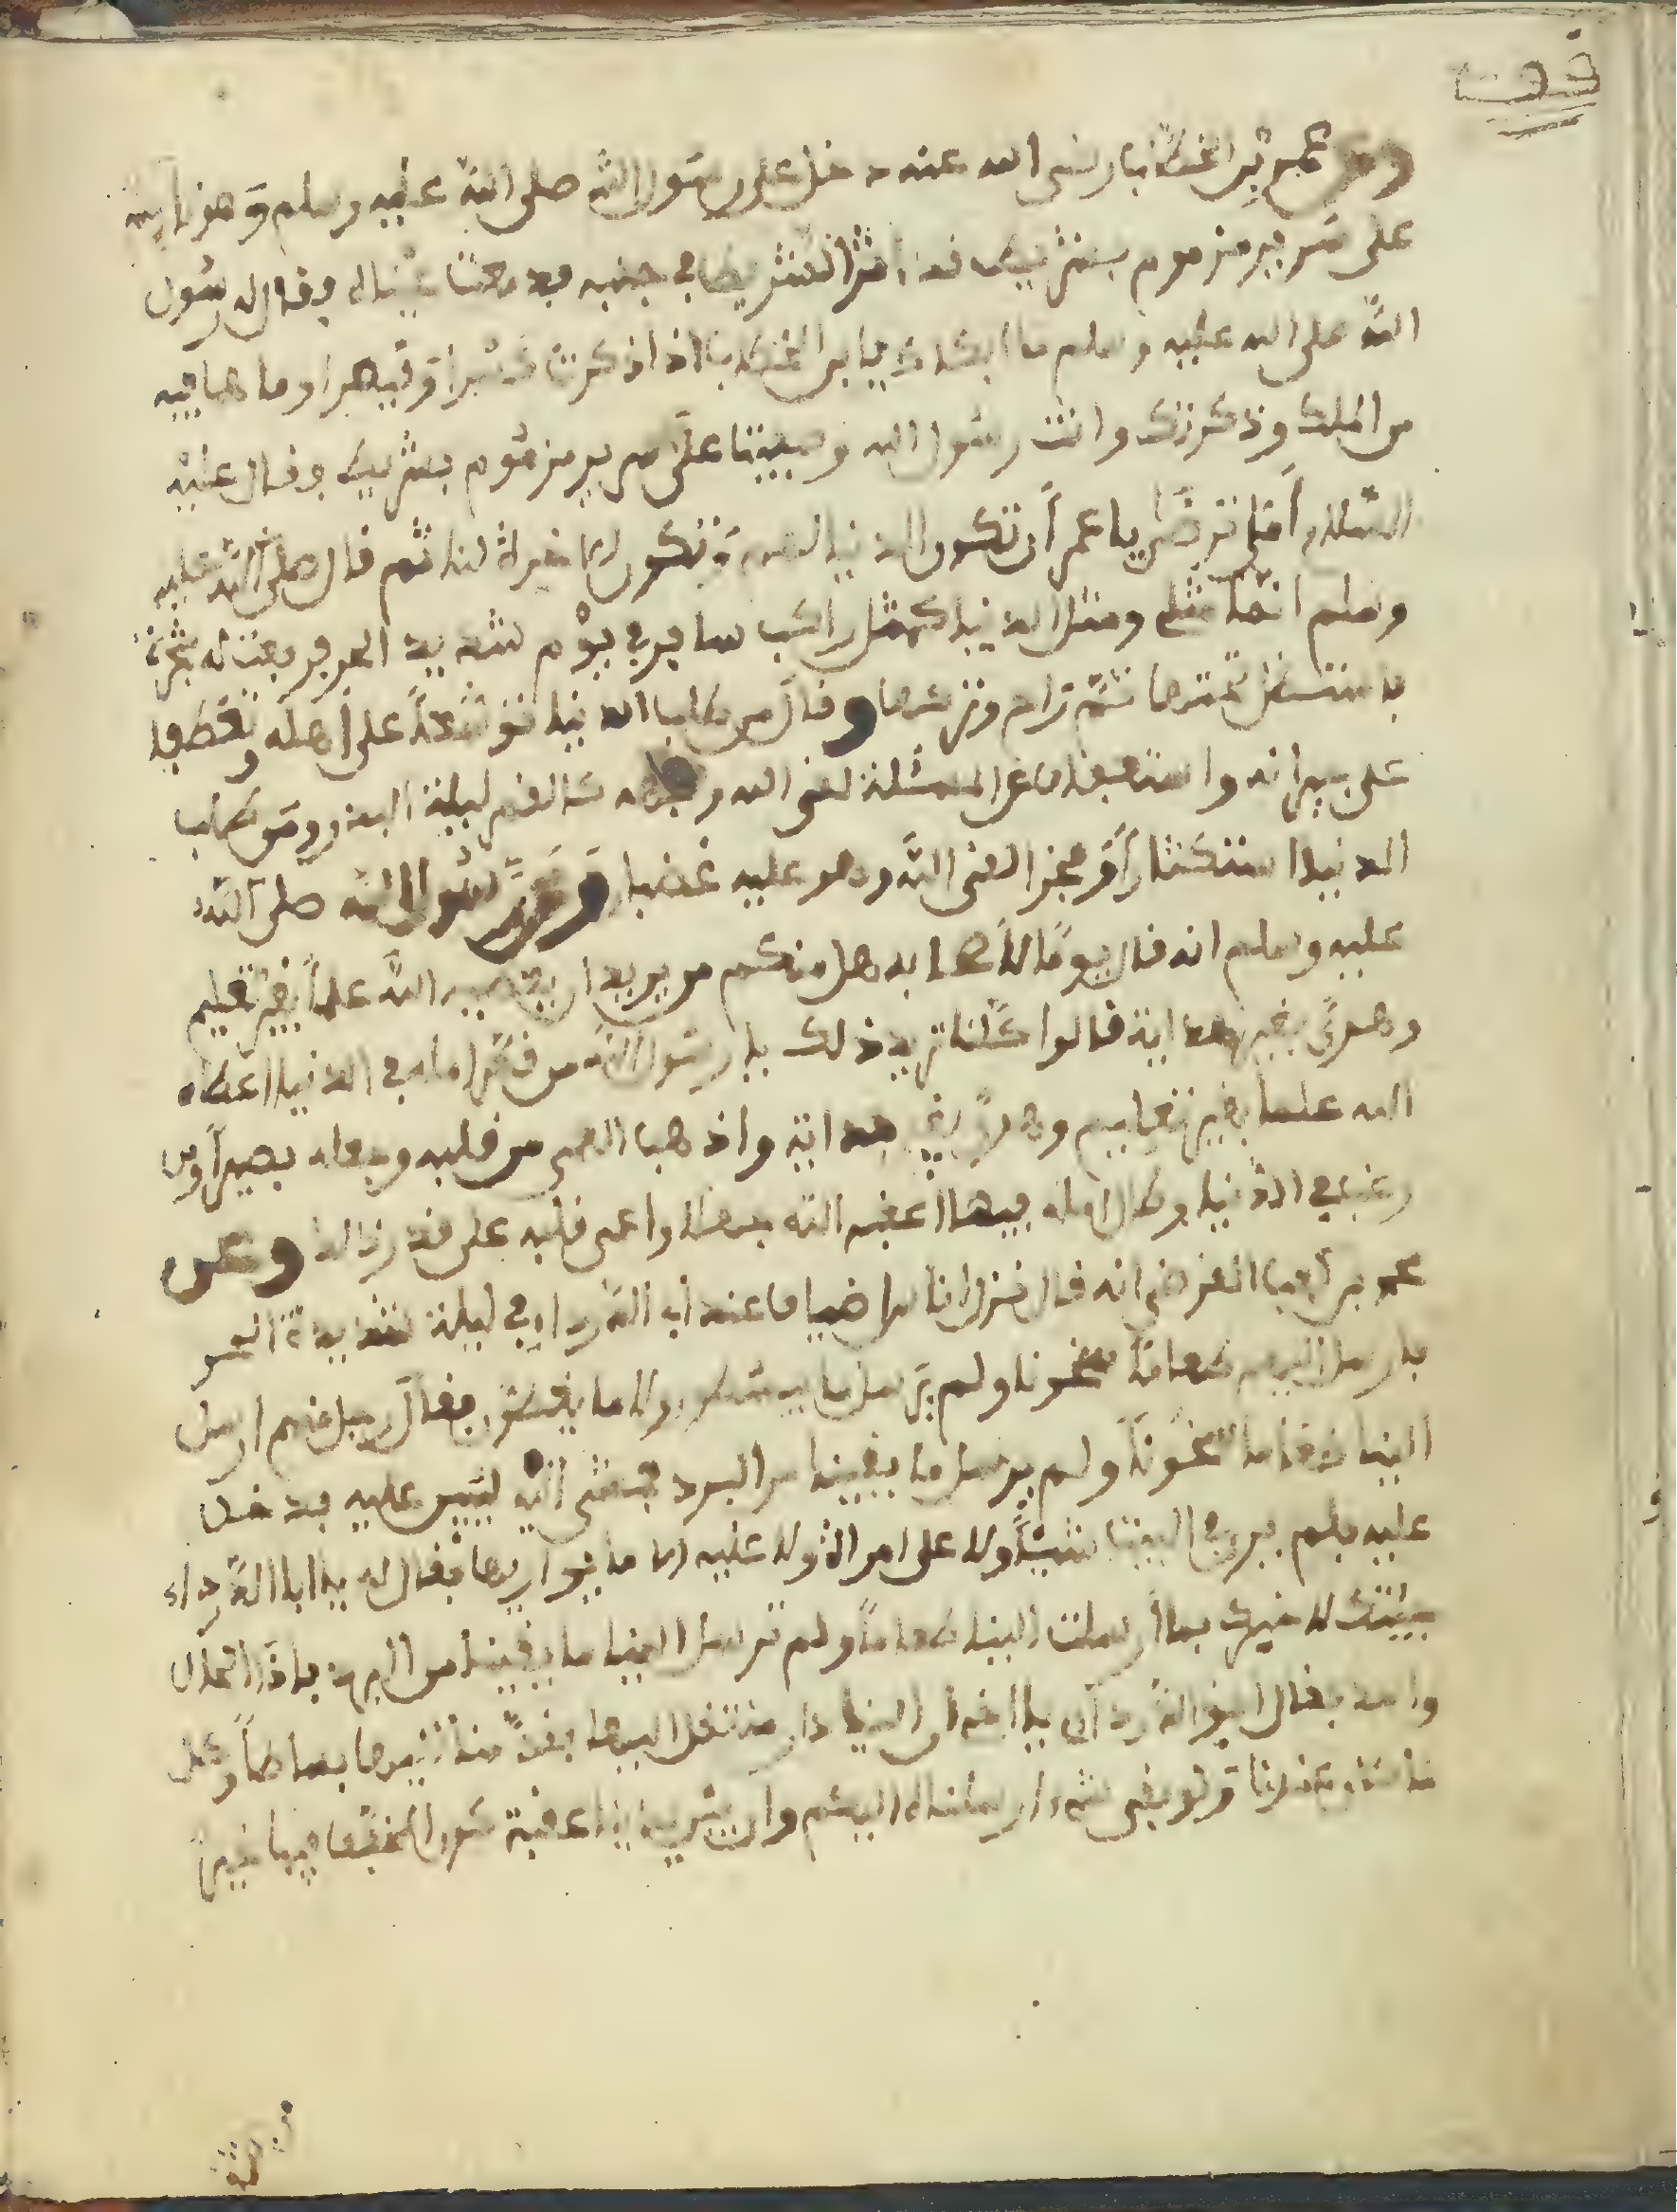 وعن عمر بن الخطاب رضي الله عنه دخل على رسول الله صلى الله عليه وسلم وهو نايم
على سرير مزموم بشريط قد اثر الشريط في جنبه فدمعت عيناه فقال له رسول
الله صلى الله عليه وسلم ما ابكاك يا بن الخطاب اذا ذكرت كسرا وقيصرا وما هما فيه
من الملك وذكرتك وانت رسول الله وحبيبنا على سرير مزموم بشريط فقال عليه
السلام أما ترضى يا عمر أن تكون الدنيا لهم وتكون الاخرة لنا ثم قال صلى الله عليه
وسلم انما مثلي ومثل الدنيا كمثل راكب سافر في يوم شديد الحر فرفعت له شجرة
فاستظل تحتها ثم راح وتركها وقال من طلب الدنيا توسعا على أهله وتعطفا
على جيرانه واستعفافا عن المسئلة لقي الله ووجهه كالقمر ليلة البدر ومن طلب
الدنيا استكثارا وفخرا لقي الله وهو عليه غضبان وعن رسول الله صلى الله
عليه وسلم انه قال يوما لأصحابه هل منكم من يريد ان يعطيه الله علما بغير تعليم
وهدى بغير هداية قالوا كلنا نريد ذلك يا رسول الله من قصر امله في الدنيا اعطاه
الله علما بغير تعليم وهدى بغير هداية واذهب العمى من قلبه وجعله بصيرا ومن
رغب في الدنيا وطال امله فيها اعقبه الله جهلا واعمى قلبه على قدر ذلك وعن
محمد بن كعب القرضي انه قال نزل اناس اضيافا عند أبي الدرداء في ليلة شديدة البرد
فارسل اليهم طعاما سخونا ولم يرسل ما يستكن ولا ما يفترش فقال رجل منهم ارسل
الينا طعاما سخونا ولم يرسل ما يقينا من البرد فمشى اليه ليبين عليه فدخل
عليه فلم ير في البيت شيئا ولا على امراته ولا عليه الا ما يواريها فقال له يا ابا الدرداء
بيتك لا خير بما أرسلت الينا طعاما ولم ترسل الينا ما يقينا من البرد فاذا الحال
واحد فقال ابو الدرداء يا اخي ان لنا دار ننتقل اليها بعد قدمنا اليها بساطنا وكل
متاع عندنا ولو بقي شيء ارسلناه اليكم وان بين يدينا عقبة كؤد المخف فيها خير